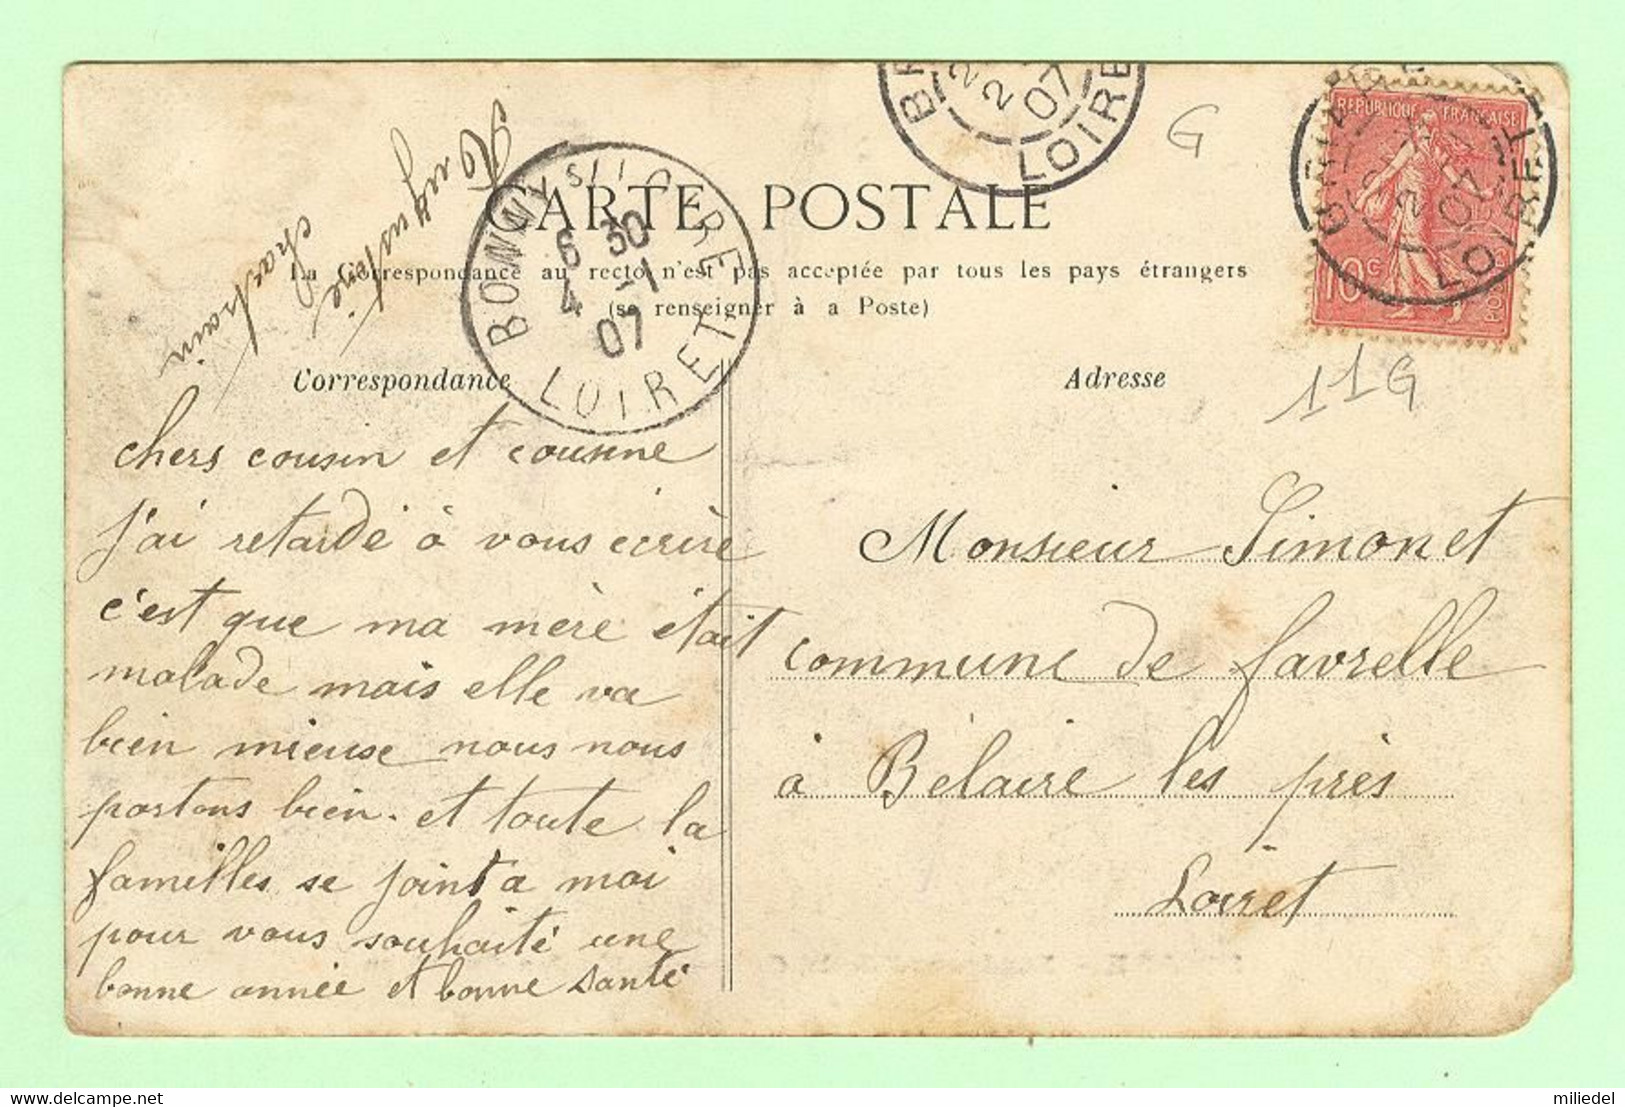 CARTE POSTALE
La Correspondance au recto n'est pas acceptée par tous les pays étrangers
(se renseigner à a Poste)
Correspondance
Adresse
Augustine
chartrain
BONNY S/LOIRE
6 30
4 -1
07
LOIRET
BR
2
2
07
LOIRE
G
REPUBLIQUE FRANÇAISE
10c
LOIRET
11G
chers cousin et cousine
j'ai retardé à vous écrire
c'est que ma mère était
malade mais elle va
bien mieuse nous nous
portons bien. et toute la
familles se joint a moi
pour vous souhaité une
bonne année et bonne santé
Monsieur Simonet
commune de favrelle
à Bélaire les près
Loiret
miliedel